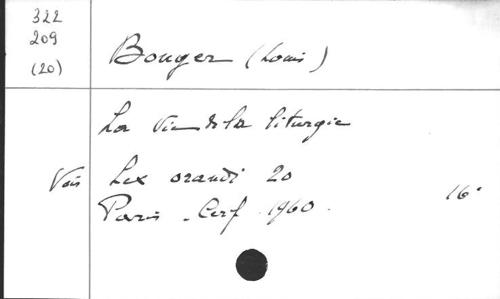 322
209
(20)
Bouyer (Louis)
La Vie de la liturgie
Voir Lex orandi 20
Paris - Cerf 1960. 16°